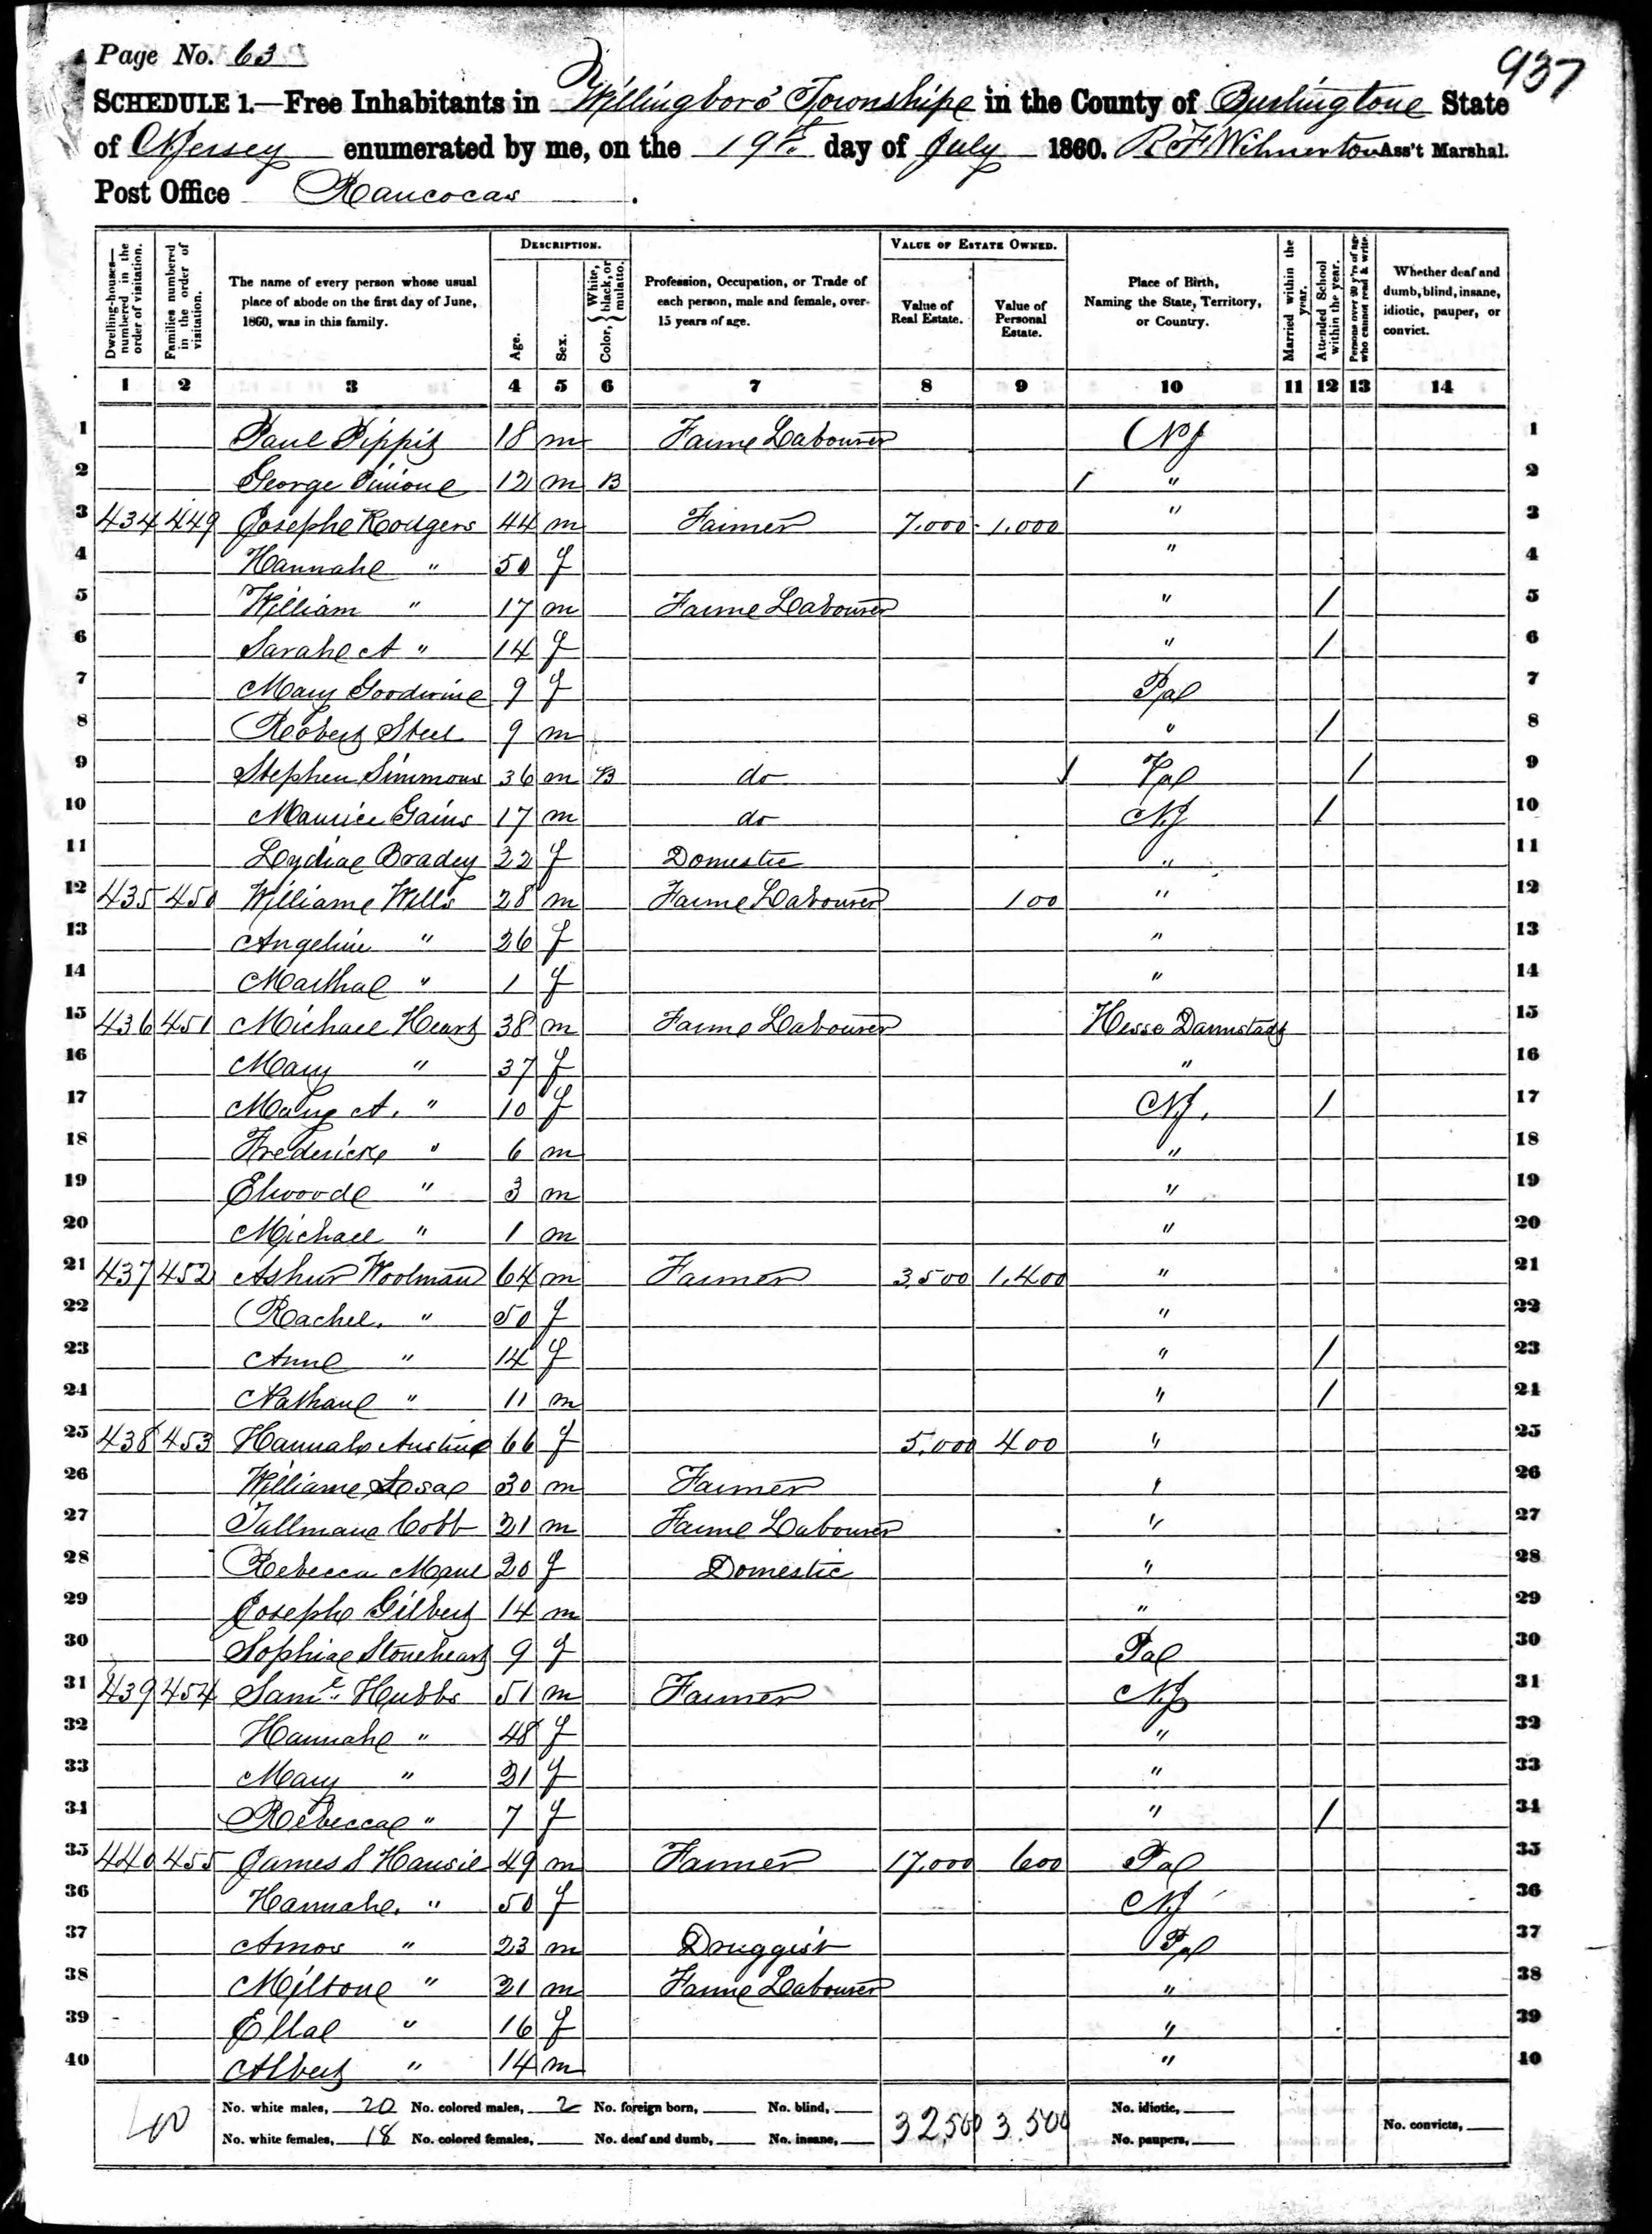 Page No. 63
937
SCHEDULE 1.—Free Inhabitants in Willingboro Township in the County of Burlington State
of N Jersey enumerated by me, on the 19th day of July 1860. R F Wilmerton Ass't Marshal.
Post Office Rancocas.
Dwelling-houses—numbered in the order of visitation.
Families numbered in the order of visitation.
The name of every person whose usual place of abode on the first day of June, 1860, was in this family.
DESCRIPTION.
Age.
Sex.
Color, { White, black, or mulatto.
Profession, Occupation, or Trade of each person, male and female, over 15 years of age.
VALUE OF ESTATE OWNED.
Value of Real Estate.
Value of Personal Estate.
Place of Birth, Naming the State, Territory, or Country.
Married within the year.
Attended School within the year.
Persons over 20 y'rs of age who cannot read & write.
Whether deaf and dumb, blind, insane, idiotic, pauper, or convict.
1 2 3 4 5 6 7 8 9 10 11 12 13 14
1 Paul Pippit 18 m Farm Labourer NJ 1
2 George 12 m B / " 2
3 434 449 Joseph Rodgers 44 m Farmer 7.000 1.000 " 3
4 Hannah " 50 f " 4
5 William " 17 m Farm Labourer " / 5
6 Sarah A " 14 f " / 6
7 Mary Goodwin 9 f Pa 7
8 Robert Steel 9 m " / 8
9 Stephen Simmons 36 m B do / Va / 9
10 Maurice Gains 17 m do NJ / 10
11 Lydia Bradey 22 f Domestic " 11
12 435 450 William Wills 28 m Farm Labourer 100 " 12
13 Angeline " 26 f " 13
14 Martha " 1 f " 14
15 436 451 Michael Heart 38 m Farm Labourer Hesse Darmstadt 15
16 Mary " 37 f " 16
17 Mary A. " 10 f NJ. / 17
18 Frederick " 6 m " 18
19 Elwood " 3 m " 19
20 Michael " 1 m " 20
21 437 452 Ashur Woolman 64 m Farmer 3.500 1.400 " 21
22 Rachel. " 50 f " 22
23 Ann " 14 f " / 23
24 Nathan " 11 m " / 24
25 438 453 Hannah Austin 66 f 5.000 400 " 25
26 William 30 m Farmer " 26
27 Tallman Cobb 21 m Farm Labourer " 27
28 Rebecca 20 f Domestic " 28
29 Joseph Gilbert 14 m " 29
30 Sophia Stoneheart 9 f Pa 30
31 439 454 Saml. Hubbs 51 m Farmer NJ 31
32 Hannah " 48 f " 32
33 Mary " 21 f " 33
34 Rebecca " 7 f " / 34
35 440 455 James S Hansil 49 m Farmer 17.000 600 Pa 35
36 Hannah. " 50 f NJ 36
37 Amos " 23 m Druggist Pa 37
38 Milton " 21 m Farm Labourer " 38
39 Ella " 16 f " 39
40 Albert " 14 m " 40
40 No. white males, 20 No. colored males, 2 No. foreign born, No. blind, 32,500 3.500 No. idiotic, No. convicts,
No. white females, 18 No. colored females, No. deaf and dumb, No. insane, No. paupers,